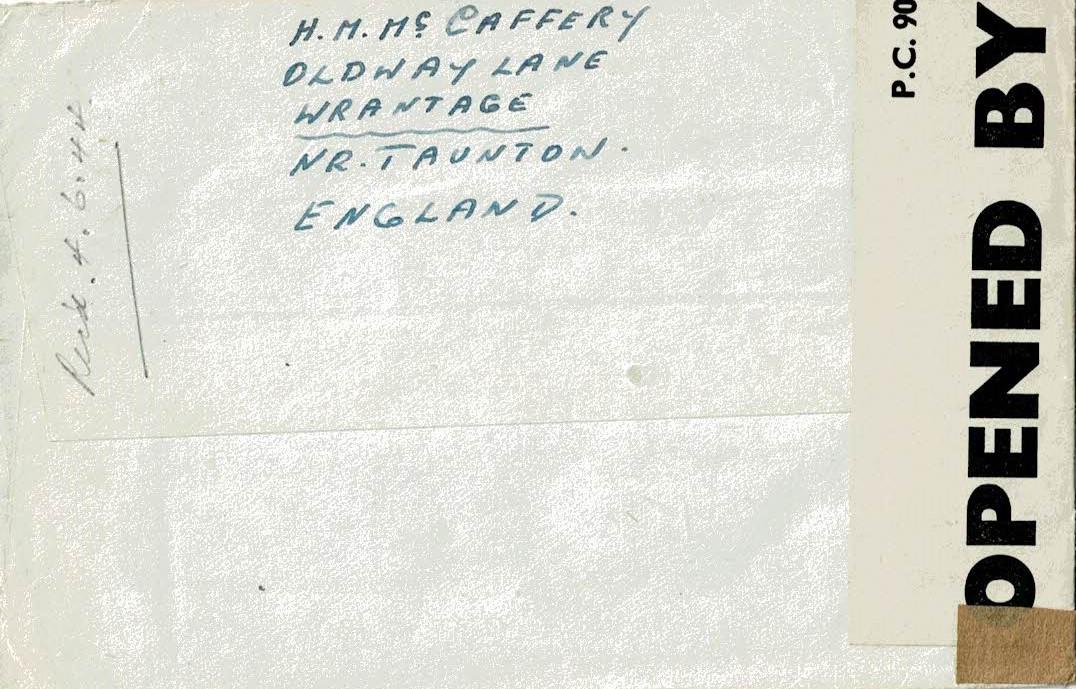 H. M. Mc CAFFERY
OLDWAY LANE
WRANTAGE
NR. TAUNTON.
ENGLAND.
Recd. 4. 6. 44.
P.C. 90
OPENED BY